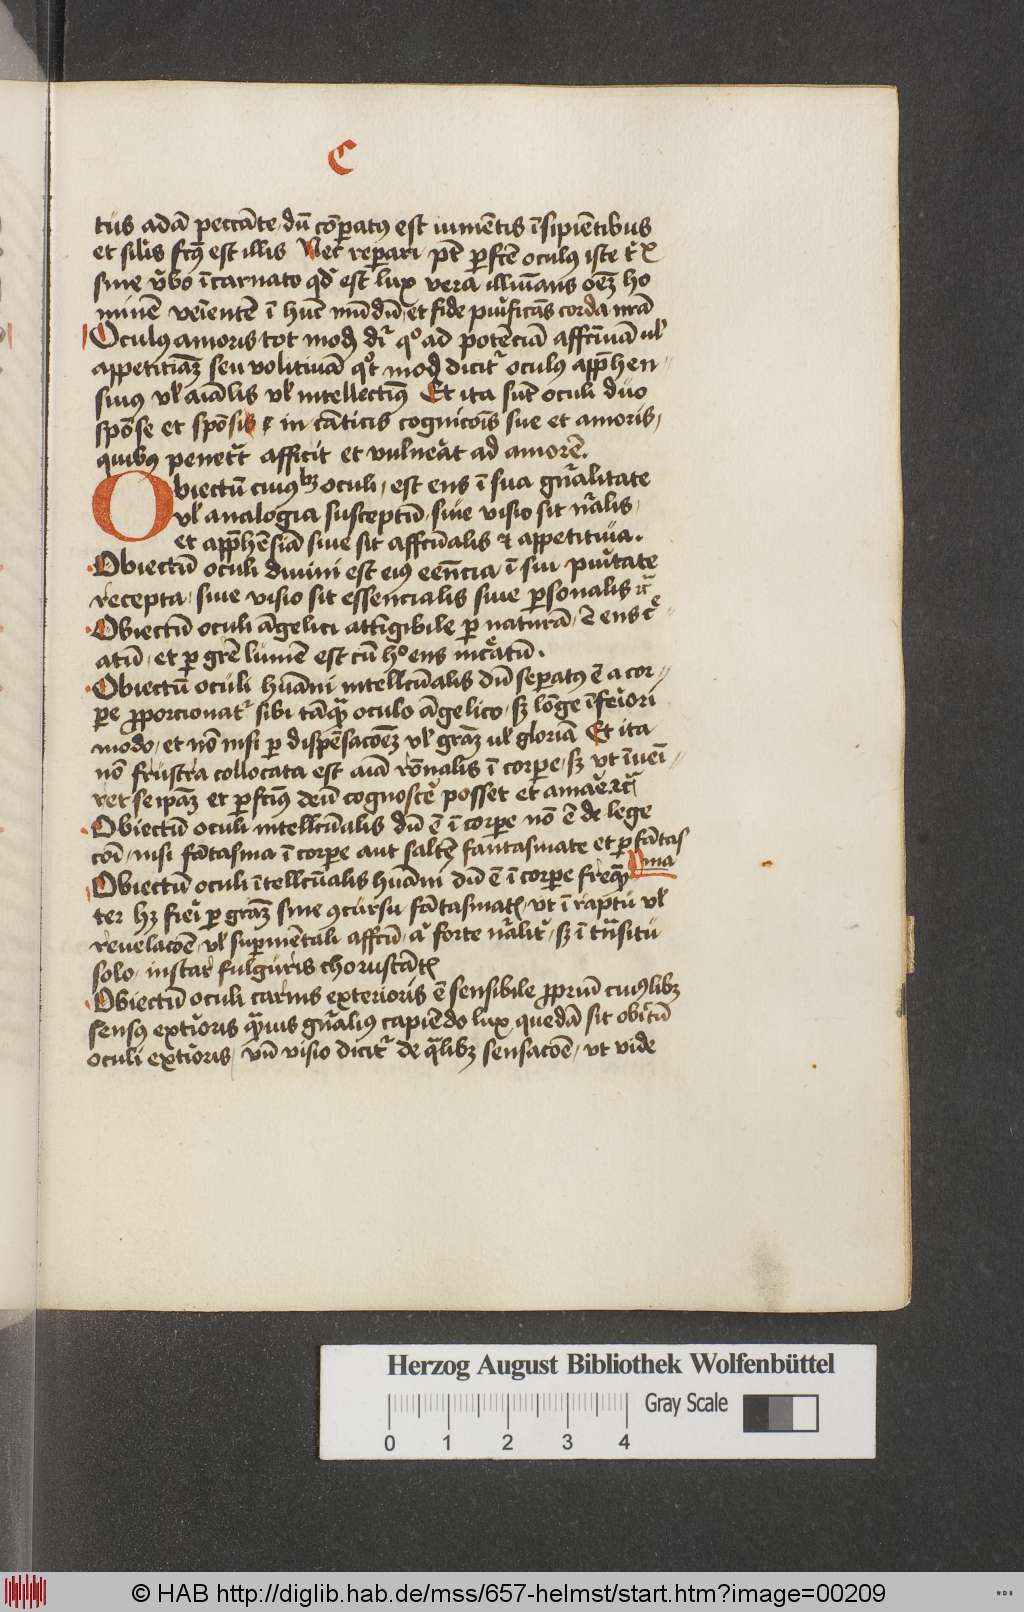 C
tus adā peccāte dū cōparatꝰ est iumētis īsipiētibus
et silis fctꝰ est illis Nec reparari pt̄ ꝑfcte oculꝰ iste
sine v̓bo īcarnato qd̓ est lux vera illuīans oēꝫ ho
minē veientē ī hūc mūdū et fide puificās corda nr̄a
Oculꝰ amoris tot modꝭ dr̄ qº ad potēciā affctiuā ul̓
appetitiuāꝫ seu volitiuā qͦt modꝭ dicitᷣ oculꝰ appͤhen-
siuus vl̓ aīalis vl̓ intellectiuꝰ Et ita sūt oculi duo
spōse et spōsi in cāticis cognicōis sue et amoris
quibꝰ penet̄t afficit et vulneāt ad amorē.
Obiectū cuiuslibꝫ oculi est ens ī sua gn̄alitate
vl̓ analogia susceptū siue visio sit nr̄alis
et appͤhēsiua siue sit affctualis ⁊ appetitiua.
Obiectū oculi diuini est eiꝰ eēncia ī sui puītate
recepta siue visio sit essencialis siue ꝑsonalis
Obiectū oculi āgelici attīgibile ꝑ naturā ē ens cͤ-
atū et ꝑ grē lumē est cū hº ens incͤatū.
Obiectū oculi hūani intellcūalis dū seperatꝰ ē a cor-
pe ꝓporcionatᷣ sibi tāꝙ oculo āgelico sꝫ lōge īferiori
modo et nō nisi ꝑ dispēsacōeꝫ vl̓ graꝫ ul̓ gloriā Et ita
nō frustra collocata est aīa rōnalis ī corpe sꝫ vt īueī-
ret seipāꝫ et ꝑfctiꝰ deū cognosce posset et amae
Obiectū oculi intellcūalis dū ē ī corpe nō ē de lege
cōi nisi fātasma ī corpe aut saltē fantasmate et ꝑ fātas
ma
Obiectū oculi ītellcūalis hūani dū ē ī corpe freqn̄
ter hꝫ fieri ꝑ graꝫ sine ꝯcursu fātasmatꝭ vt ī raptu vl̓
reuelacōe vl̓ suꝑmētali affctu a̓ forte nr̄alit̓ sꝫ ī trāsitu
solo instar fulguris choruscātꝭ
Obiectū oculi carnis exterioris ē sensibile ꝓpriū cuiꝰlibꝫ
sensꝰ ext̓ioris qͣuis gn̄aliꝰ capiēdo lux quedā sit obctū
oculi ext̓ioris vn̄ visio dicitᷣ de qͣlibꝫ sensacōe vt vide
Herzog August Bibliothek Wolfenbüttel
Gray Scale
0 1 2 3 4
© HAB http://diglib.hab.de/mss/657-helmst/start.htm?image=00209